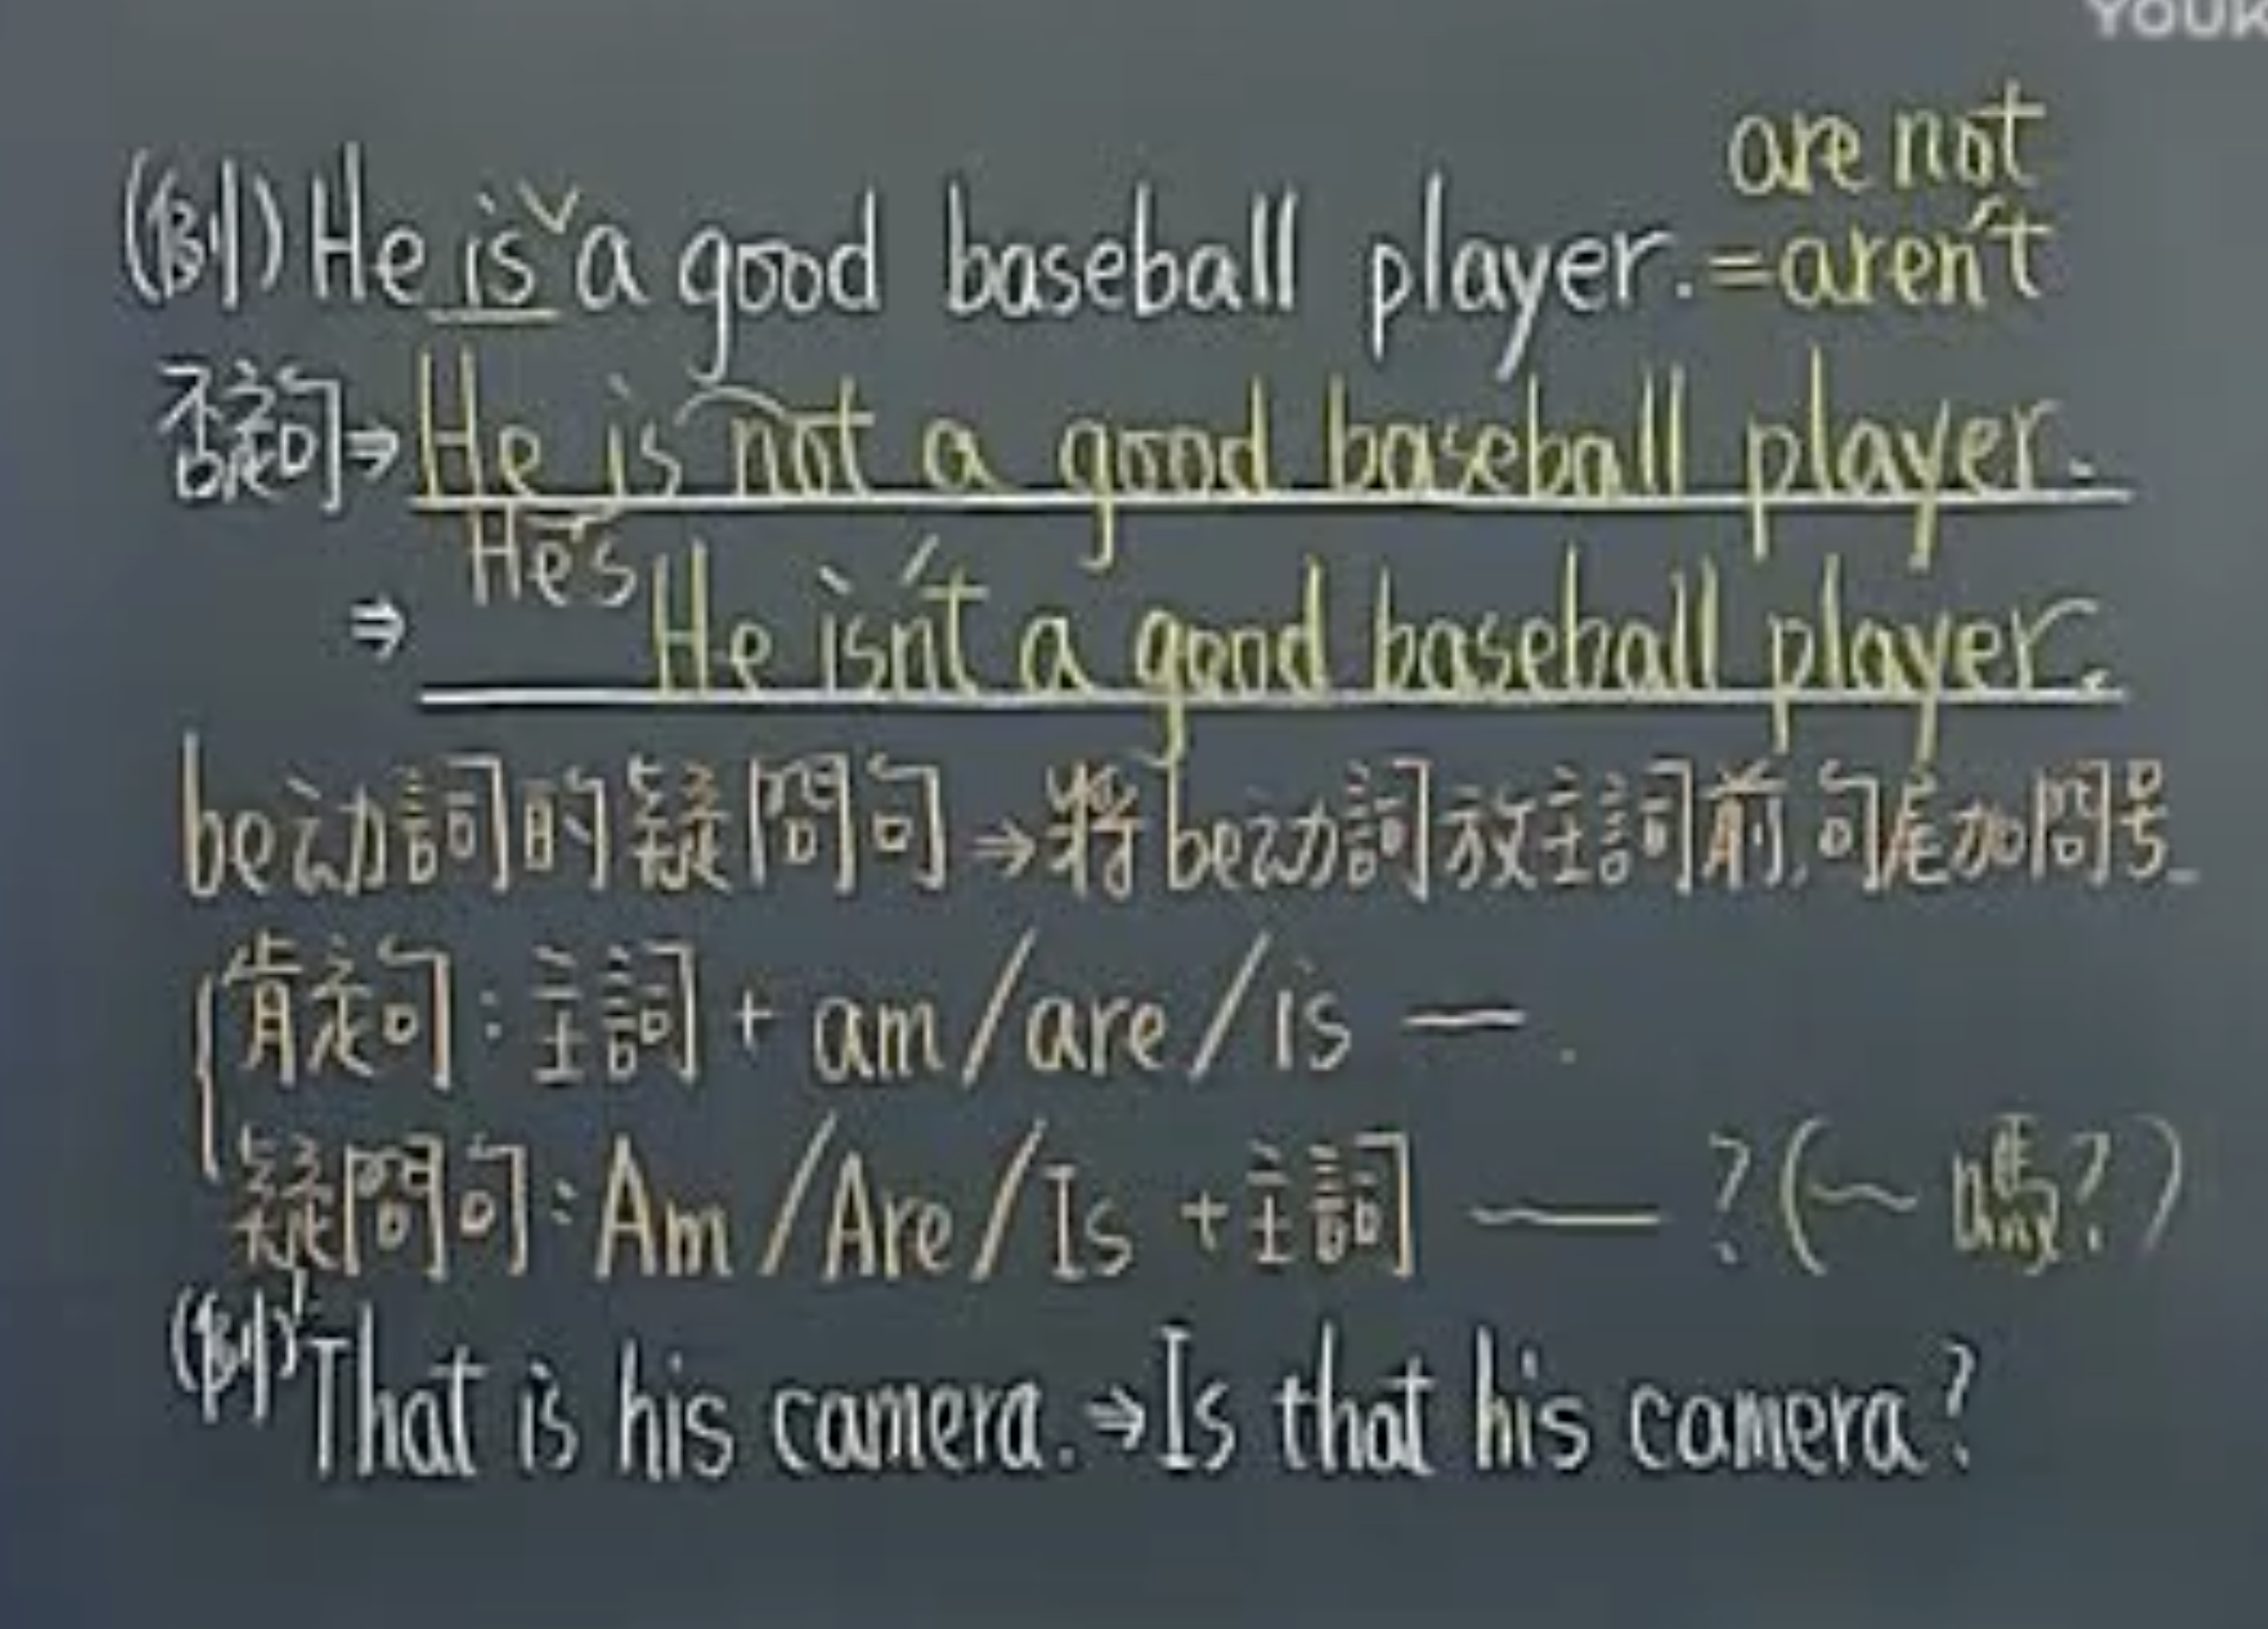 YOUK
are not
(例) He is ˇ a good baseball player. = aren't
否定句⇒ He is not a good baseball player.
He's
⇒ He isn't a good baseball player.
be动詞的疑問句→將be动詞放主詞前,句尾加問号。
肯定句:主詞+am/are/is —.
疑問句:Am/Are/Is+主詞 — ?(~嗎?)
(例)1. That is his camera.→Is that his camera?